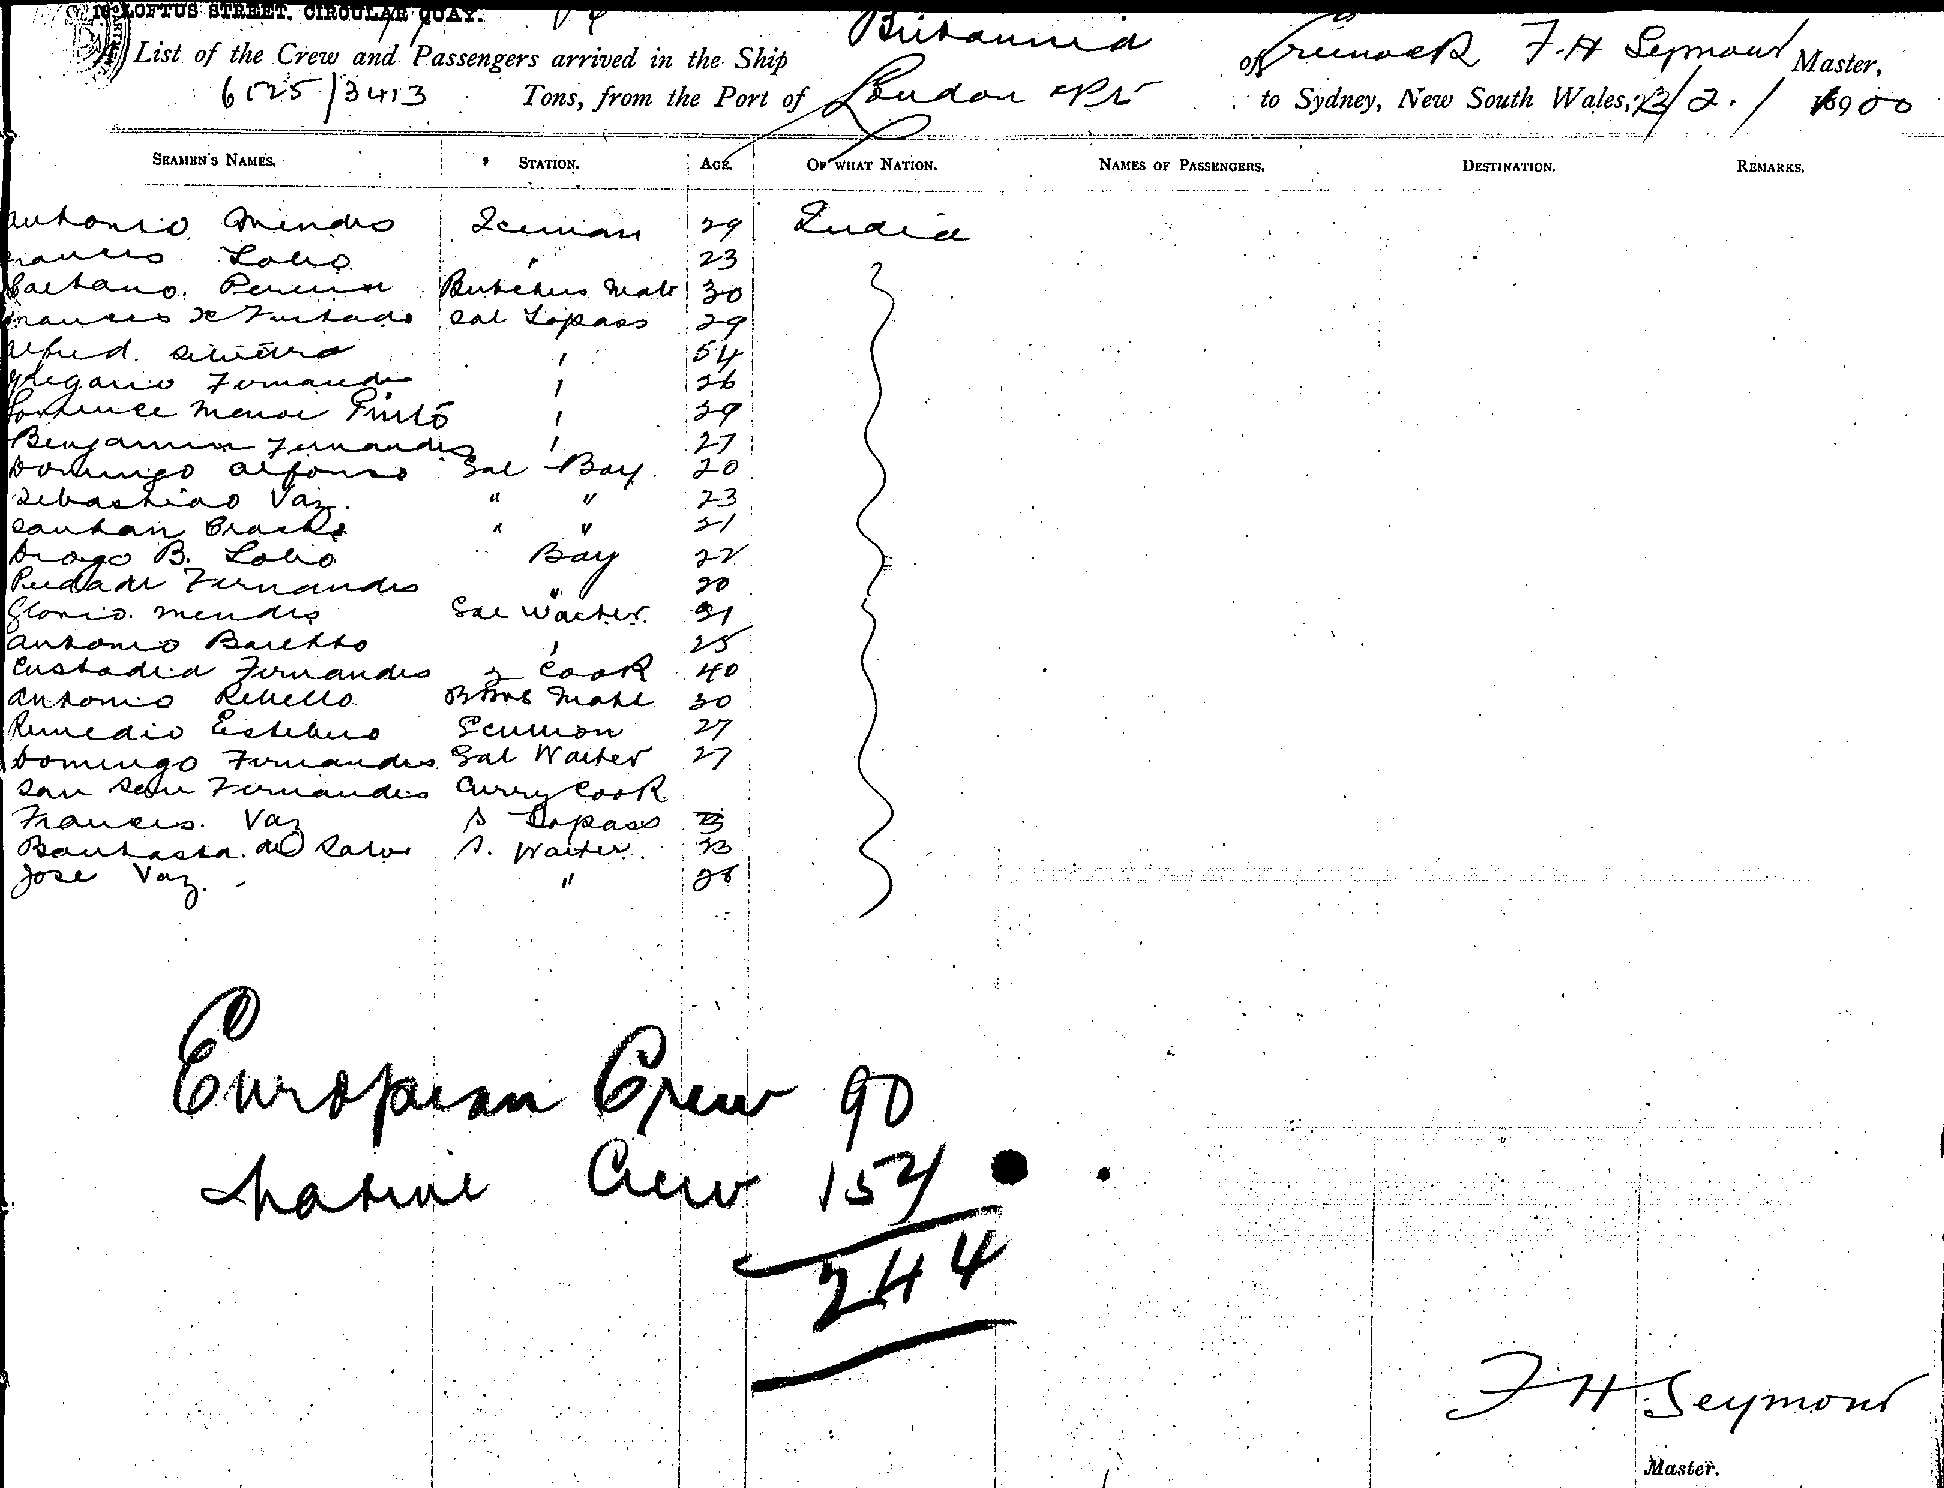 16 LOFTUS STREET, CIRCULAR QUAY.
A List of the Crew and Passengers arrived in the Ship Britannia of Greenock F. H Seymour Master,
6525/3413 Tons, from the Port of London &c to Sydney, New South Wales, 23/2/1900
SEAMEN'S NAMES. STATION. AGE. OF WHAT NATION. NAMES OF PASSENGERS. DESTINATION. REMARKS.
Antonio Mendes Iceman 29 India
Francis Lobo " 23
Caetano Pereira Butchers Mate 30
Francis X Furtado Sal Topass 29
Alfred 54
Fernandes " 26
Menoe Pinto " 29
Benjamin Fernandes " 27
Domingo Alfonso Sal Boy 20
Sebastiao Vaz " " 23
Santan " " 21
Diogo B. Lobo Boy 22
Piedade Fernandes " 20
Glorio Mendes Sal Waiter 31
Antonio Baretto " 25
Custodia Fernandes 3 Cook 40
Antonio Rebello Mate 30
Remedio Estebeiro Scullion 27
Domingo Fernandes Sal Waiter 27
San Fernandes Curry Cook
Francis Vaz S Topass
S. Waiter 23
Jose Vaz "  28
European Crew 90
Native Crew 154
244
F H Seymour
Master.